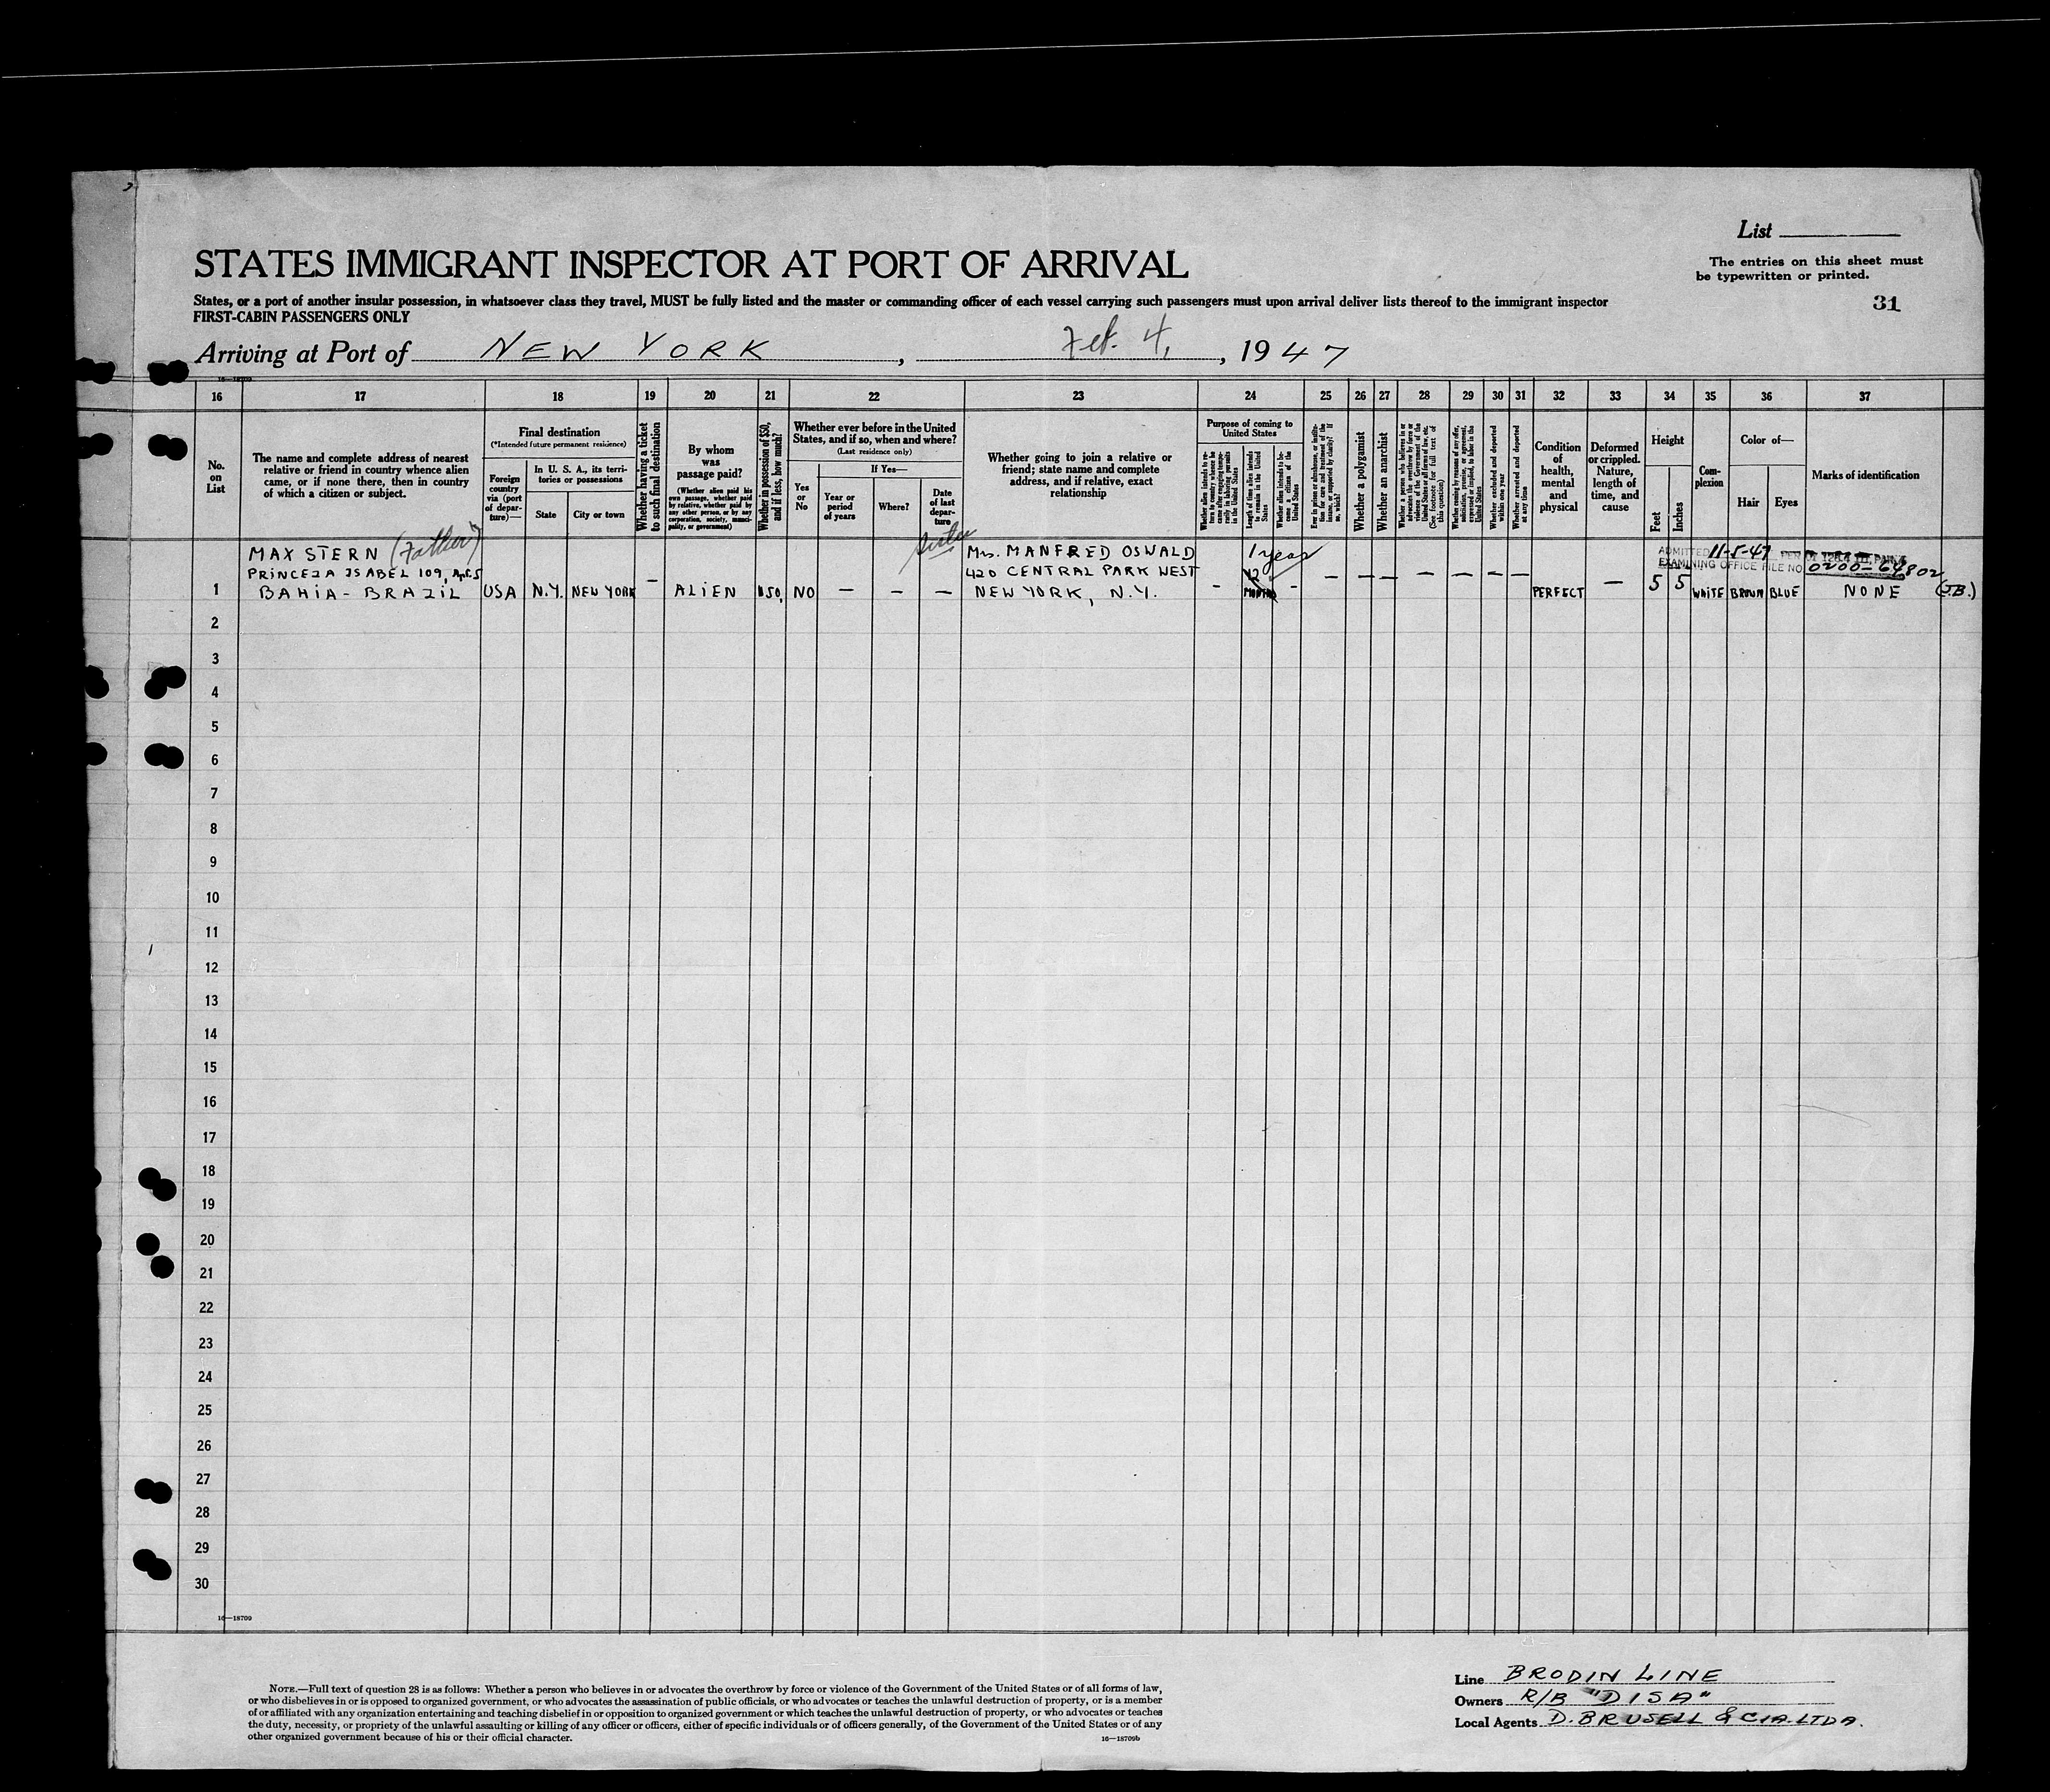 List
The entries on this sheet must
be typewritten or printed.
31
STATES IMMIGRANT INSPECTOR AT PORT OF ARRIVAL
States, or a port of another insular possession, in whatsoever class they travel, MUST be fully listed and the master or commanding officer of each vessel carrying such passengers must upon arrival deliver lists thereof to the immigrant inspector
FIRST-CABIN PASSENGERS ONLY
Arriving at Port of NEW YORK, Feb. 4, 1947
16 17 18 19 20 21 22 23 24 25 26 27 28 29 30 31 32 33 34 35 36 37
No.
on
List
The name and complete address of nearest
relative or friend in country whence alien
came, or if none there, then in country
of which a citizen or subject.
Final destination
(*Intended future permanent residence)
Foreign
country
via (port
of depar-
ture)—
In U. S. A., its terri-
tories or possessions
State
City or town
Whether having a ticket
to such final destination
By whom
was
passage paid?
(Whether alien paid his
own passage, whether paid
by relative, whether paid by
any other person, or by any
corporation, society, munici-
pality, or government)
Whether in possession of $50,
and if less, how much?
Whether ever before in the United
States, and if so, when and where?
(Last residence only)
Yes
or
No
If Yes—
Year or
period
of years
Where?
Date
of last
depar-
ture
Whether going to join a relative or
friend; state name and complete
address, and if relative, exact
relationship
Purpose of coming to
United States
Whether alien intends to re-
turn to country whence he
came after engaging tempo-
rarily in laboring pursuits
in the United States
Length of time alien intends
to remain in the United
States
Whether alien intends to be-
come a citizen of the
United States
Ever in prison or almshouse, or institu-
tion for care and treatment of the
insane, or supported by charity? If
so, which?
Whether a polygamist
Whether an anarchist
Whether a person who believes in or
advocates the overthrow by force or
violence of the Government of the
United States or all forms of law, etc.
(See footnote for full text of
this question)
Whether coming by reason of any offer,
solicitation, promise, or agreement,
expressed or implied, to labor in the
United States
Whether excluded and deported
within one year
Whether arrested and deported
at any time
Condition
of
health,
mental
and
physical
Deformed
or crippled.
Nature,
length of
time, and
cause
Height
Feet
Inches
Com-
plexion
Color of—
Hair
Eyes
Marks of identification
MAX STERN (Father)
PRINCEZA ISABEL 109, Apt. 5
BAHIA - BRAZIL
1
USA
N.Y.
NEW YORK
–
ALIEN
$50,
NO
–
–
–
sister
Mrs. MANFRED OSWALD
420 CENTRAL PARK WEST
NEW YORK, N.Y.
–
1 year
12
MONTHS
–
– – – – – – –
PERFECT
–
5 5
WHITE
BROWN
BLUE
ADMITTED 11-5-47
EXAMINING OFFICE FILE NO 0200-64802
NONE
(J.B.)
2
3
4
5
6
7
8
9
10
11
12
13
14
15
16
17
18
19
20
21
22
23
24
25
26
27
28
29
30
16—18709
NOTE.—Full text of question 28 is as follows: Whether a person who believes in or advocates the overthrow by force or violence of the Government of the United States or of all forms of law,
or who disbelieves in or is opposed to organized government, or who advocates the assassination of public officials, or who advocates or teaches the unlawful destruction of property, or is a member
of or affiliated with any organization entertaining and teaching disbelief in or opposition to organized government or which teaches the unlawful destruction of property, or who advocates or teaches
the duty, necessity, or propriety of the unlawful assaulting or killing of any officer or officers, either of specific individuals or of officers generally, of the Government of the United States or of any
other organized government because of his or their official character.
16—18709b
Line BRODIN LINE
Owners R/B "DISA"
Local Agents D. BRUSELL & CIA. LTDA.